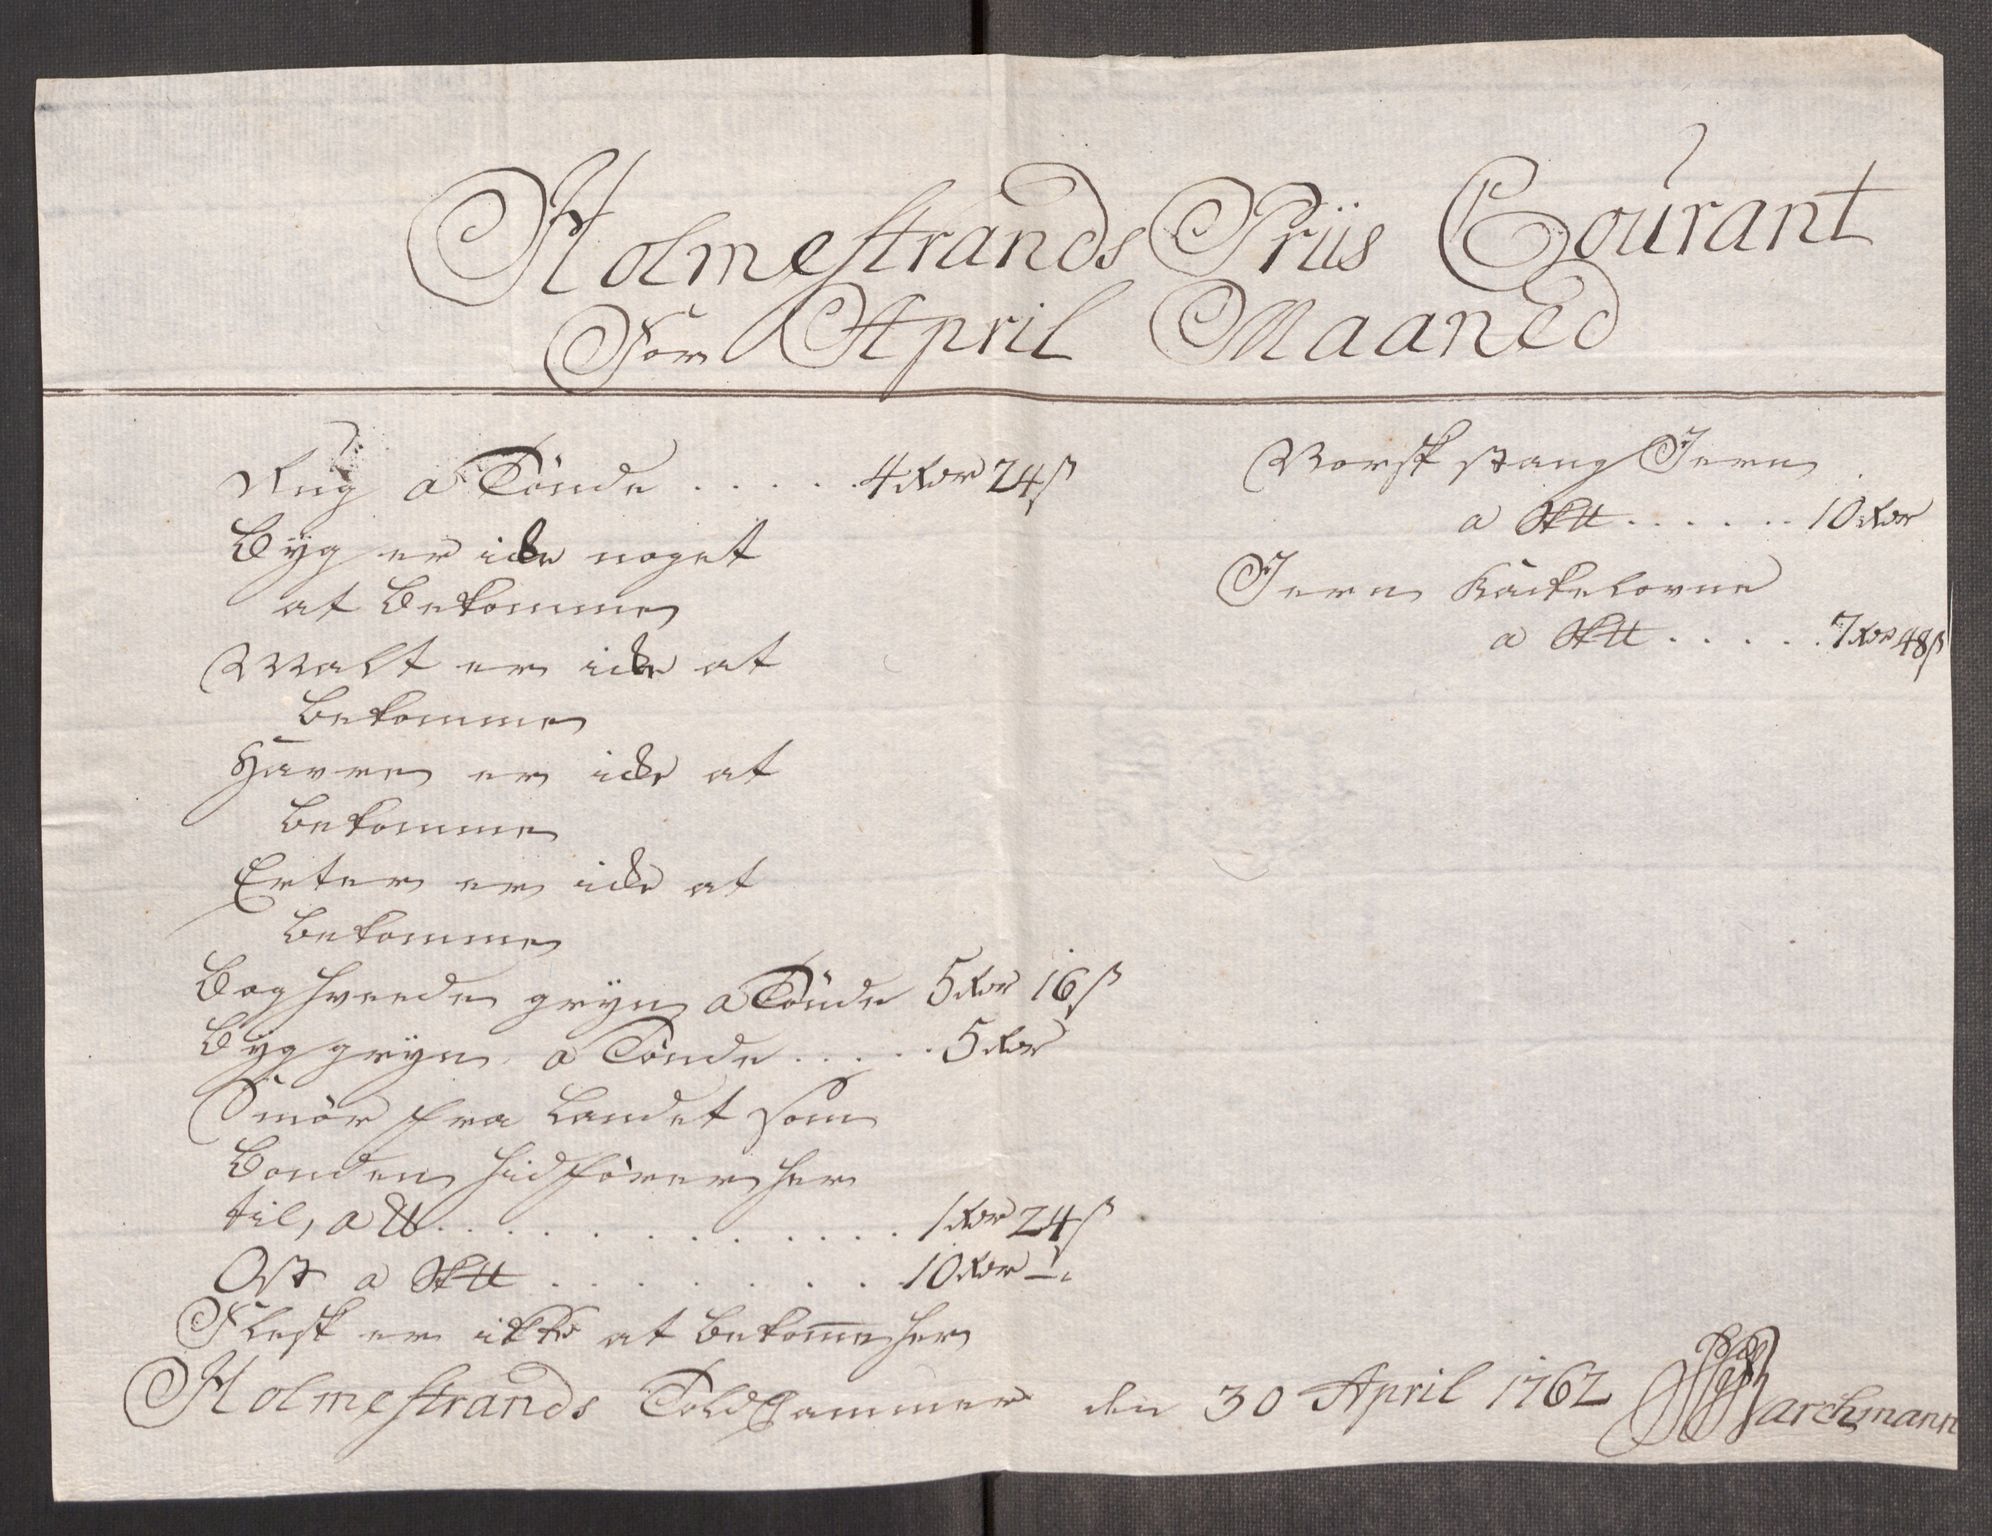 Holmestrands Priis Courant
For April Maaned
Rug a Tönde . . . . . 4 Rdr 24 ß
Byg er icke noget
at bekomme
Malt er icke at
bekomme
Havre er icke at
bekomme
Erter er icke at
bekomme
Boghveede gryn a Tönde 5 Rdr 16 ß
Byggryn a Tönde . . . . . 5 Rdr
Smör fra Landet som
Bonden hidförer her
til, a ℔ . . . . . . . . . . . 1 Rdr 24 ß
Ost a Sk℔ . . . . . . . . . 10 Rdr —
Flesk er ikke at bekomme her
Norsk stang Jern
a Sk℔ . . . . . . 10 Rdr
Jern Kackelovne
a Sk℔ . . . . . . 7 Rdr 48 ß
Holmestrands Toldkammer den 30 April 1762